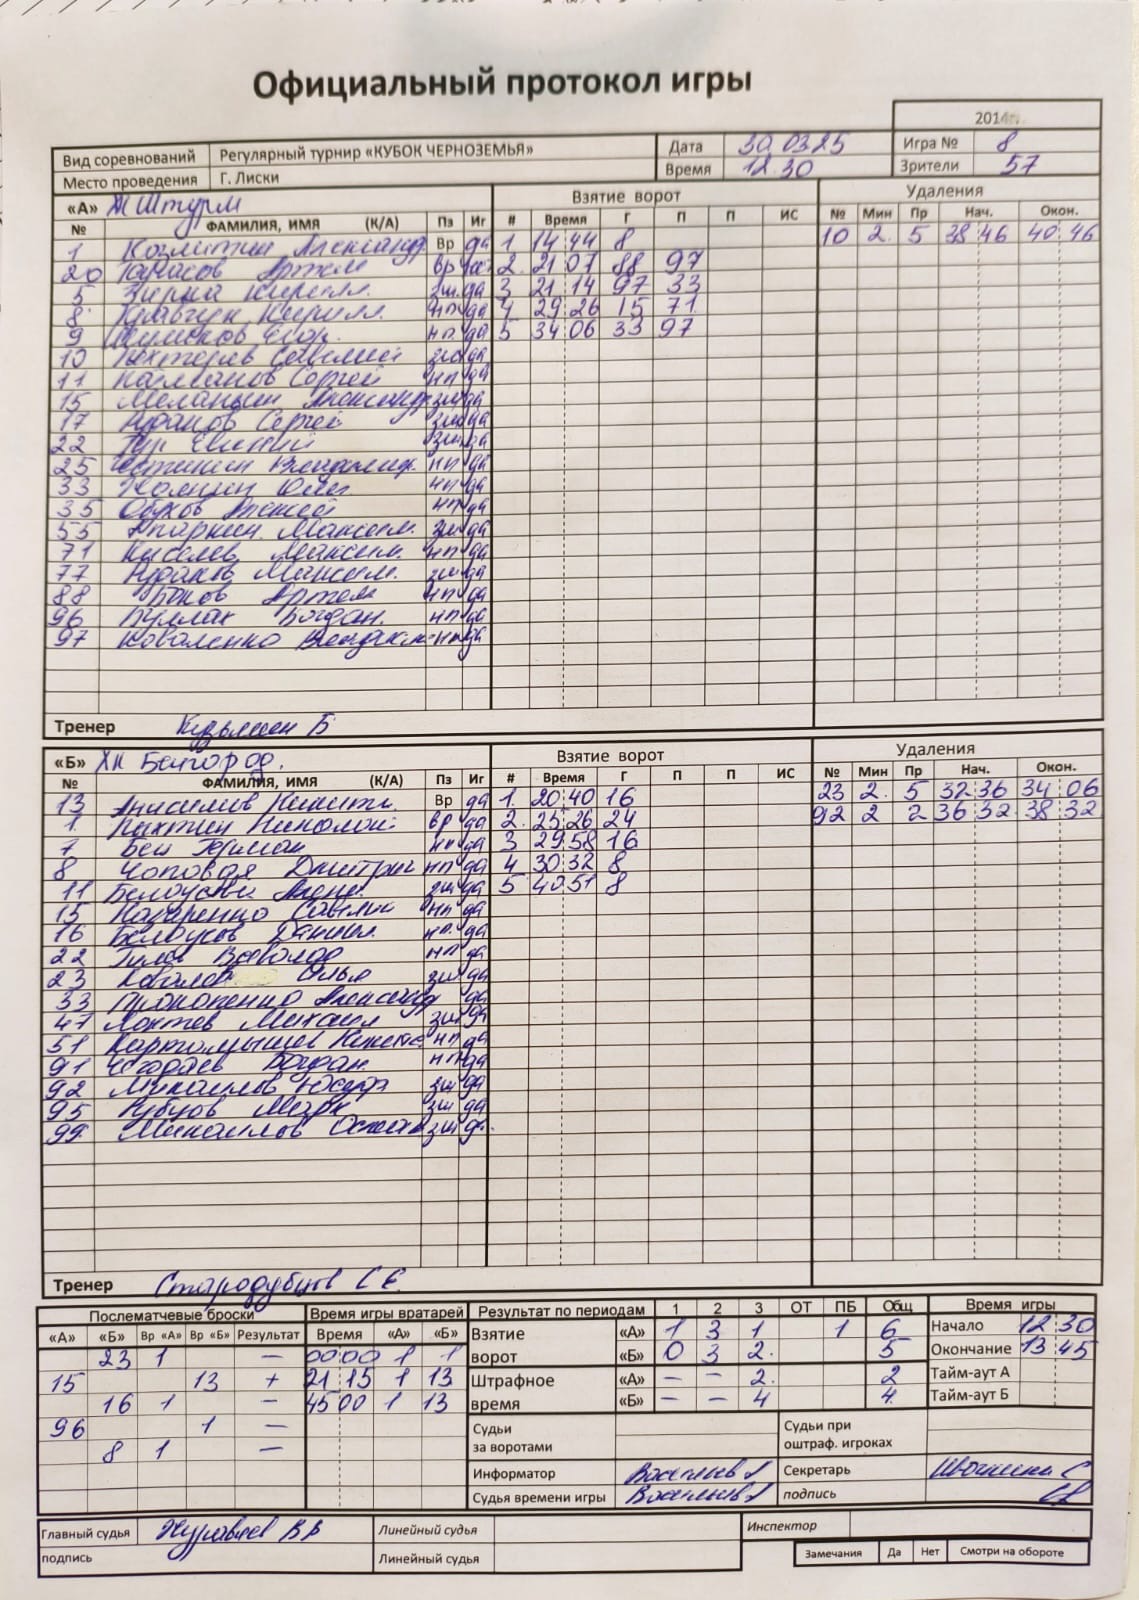 Официальный протокол игры
2014г.
Вид соревнований Регулярный турнир «КУБОК ЧЕРНОЗЕМЬЯ» Дата 30.03.25 Игра № 8
Место проведения Г. Лиски Время 12.30 Зрители 57
«А» Штурм Взятие ворот Удаления
№ ФАМИЛИЯ, ИМЯ (К/А) Пз Иг # Время Г П П ИС № Мин Пр Нач. Окон.
1 Козлитин Александр Вр да 1 14 44 8 10 2 5 38 46 40 46
20 Тарасов Артем вр да 2 21 07 88 97
5 Кирилл зщ да 3 21 14 97 33
8 Кравчук Кирилл нп да 4 29 26 15 71
9 Егор нп да 5 34 06 33 97
10 Савелий зщ да
11 Сергей нп да
15 Меланьин Александр зщ да
17 Сергей зщ да
22 Евгений зщ да
25 нп да
33 Олег нп да
35 Обухов Алексей нп да
55 Максим зщ да
71 Киселев Максим нп да
77 Максим зщ да
88 Артем нп да
96 Богдан нп да
97 Коваленко нп да
Тренер Кузьмин Б
«Б» ХК Белгород. Взятие ворот Удаления
№ ФАМИЛИЯ, ИМЯ (К/А) Пз Иг # Время Г П П ИС № Мин Пр Нач. Окон.
13 Анисимов Никита Вр да 1 20 40 16 23 2 5 32 36 34 06
1 Николай вр да 2 25 26 24 92 2 2 36 32 38 32
7 Бец Герман нп да 3 29 58 16
8 Чоповой Дмитрий нп да 4 30 32 8
11 зщ да 5 40 51 8
15 Назаренко Савелий нп да
16 Белоусов Даниил нп да
22 Всеволод нп да
23 Ковалев Илья зщ да
33 Прокопенко Александр да
47 Локтев Михаил зщ да
51 Картамышев Никита нп да
91 Богдан нп да
92 Михайлов Юсуф зщ да
95 Марк зщ да
99 Михайлов зщ да
Тренер Стародубцев С Е
Послематчевые броски Время игры вратарей Результат по периодам 1 2 3 ОТ ПБ Общ Время игры
«А» «Б» Вр «А» Вр «Б» Результат Время «А» «Б» Взятие «А» 1 3 1 1 6 Начало 12 30
23 1 — 00 00 1 1 ворот «Б» 0 3 2 5 Окончание 13 45
15 13 + 21 15 1 13 Штрафное «А» — — 2 2 Тайм-аут А
16 1 — 45 00 1 13 время «Б» — — 4 4 Тайм-аут Б
96 1 — Судьи Судьи при
8 1 — за воротами оштраф. игроках
Информатор Васильев Секретарь
Судья времени игры Васильев подпись
Главный судья Журавлев В В Линейный судья Инспектор
подпись Линейный судья Замечания Да Нет Смотри на обороте